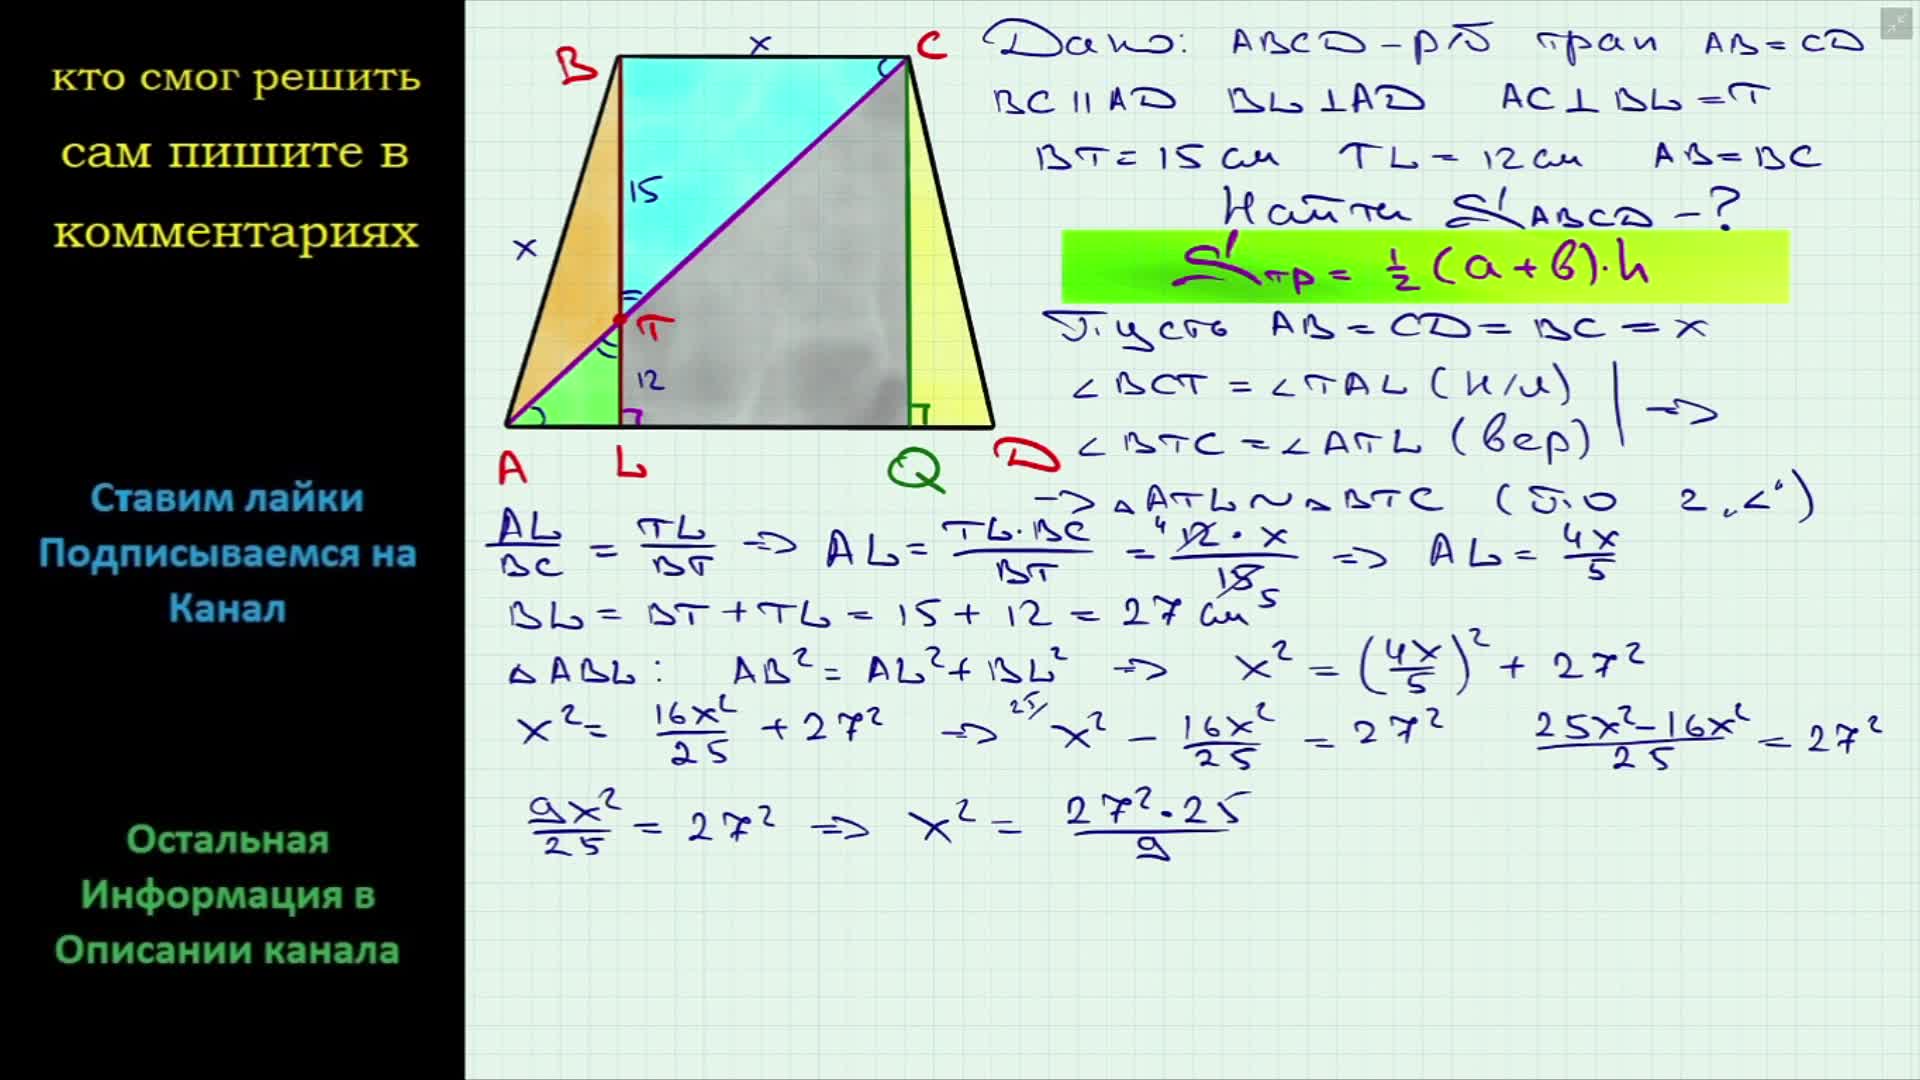 кто смог решить
сам пишите в
комментариях
Ставим лайки
Подписываемся на
Канал
Остальная
Информация в
Описании канала
B
x
C
15
x
T
12
A
L
Q
D
Дано: ABCD - р/б трап AB = CD
BC || AD BL ⊥ AD AC ⊥ BL = T
BT = 15 см TL = 12 см AB = BC
Найти S ABCD - ?
Sтр = 1/2 (a + b) · h
Пусть AB = CD = BC = x
∠BCT = ∠TAL (н/л)
∠BTC = ∠ATL (вер) | =>
=> △ATL ~ △BTC (по 2 ∠)
AL/BC = TL/BT => AL = TL·BC/BT = 12·x/15 => AL = 4x/5
4
5
BL = BT + TL = 15 + 12 = 27 см
△ABL: AB² = AL² + BL² => x² = (4x/5)² + 27²
x² = 16x²/25 + 27² => 25/ x² - 16x²/25 = 27² 25x²-16x²/25 = 27²
9x²/25 = 27² => x² = 27²·25/9